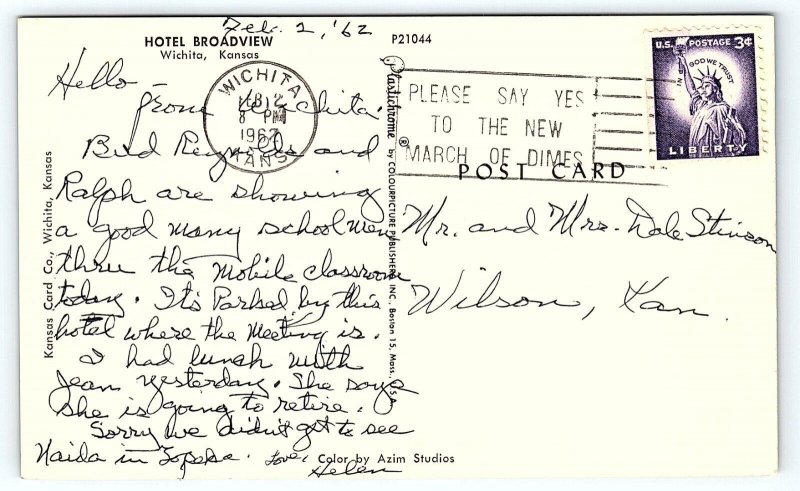 Feb. 2, '62
HOTEL BROADVIEW
Wichita, Kansas
P21044
Hello -
from Wichita.
Bud Reynolds and
Ralph are showing
a good many school men
thru the mobile classroom
today. It's Parked by this
hotel where the meeting is.
I had lunch with
Jean yesterday. She says
she is going to retire.
Sorry we didn't get to see
Naida in Topeka. Love,
Helen
Color by Azim Studios
Kansas Card Co., Wichita, Kansas
Plastichrome ® by COLOURPICTURE PUBLISHERS INC., Boston 15, Mass. U.S.A.
WICHITA
FEB 2
8 PM
1962
KANS
PLEASE SAY YES
TO THE NEW
MARCH OF DIMES
U.S. POSTAGE 3¢
IN GOD WE TRUST
LIBERTY
POST CARD
Mr. and Mrs. Dale Stinson
Wilson, Kan.